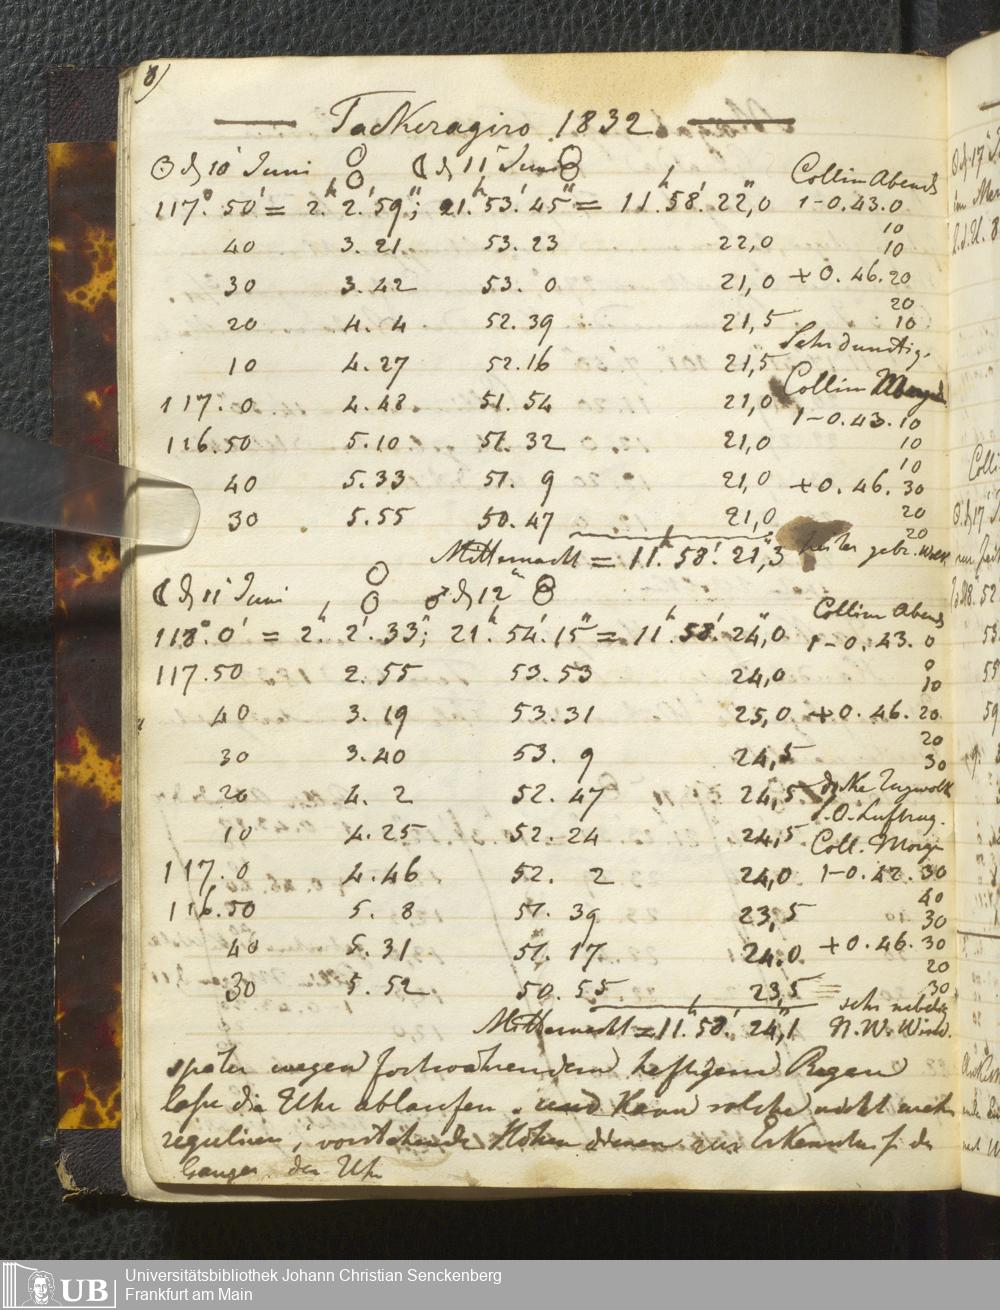 8)
Tackeragiro 1832
☉ d 10' Juni ☾ d 11' Juni
117°. 50' = 2h. 2'. 59"; 21h. 53'. 45" = 11h. 58'. 22",0
40 3. 21 53. 23 22,0
30 3. 42 53. 0 21,0
20 4. 4 52. 39 21,5
10 4. 27 52. 16 21,5
117. 0 4. 48 51. 54 21,0
116. 50 5. 10 51. 32 21,0
40 5. 33 51. 9 21,0
30 5. 55 50. 47 21,0
Mitternacht = 11h. 58'. 21",3
Collim Abends
1-0.43.0
10
10
+ 0.46.20
20
10
Sehr dunstig.
Collim
1-0.43.10
10
10
+0.46.30
20
20
heiter gebr. Wolk
☾ d 11' Juni ♂ d 12
118°. 0' = 2h. 2'. 33"; 21h. 54'. 15" = 11h. 58'. 24",0
117. 50 2. 55 53. 53 24,0
40 3. 19 53. 31 25,0
30 3. 40 53. 9 24,5
20 4. 2 52. 47 24,5
10 4. 25 52. 24 24,5
117. 0 4. 46 52. 2 24,0
116. 50 5. 8 51. 39 23,5
40 5. 31 51. 17 24.0
30 5. 52 50. 55 23,5
Mitternacht = 11h. 58'. 24",1
Collim Abends
1-0.43.0
0
10
+0.46.20
20
30
dicke Zugwolk
S.O. Luftzug.
Coll. Morge
1-0.42.30
40
30
+0.46.30
20
30
sehr nebelig
N.W. Wind.
später wegen fortwährendem heftigem Regen
lasse die Uhr ablaufen und kann solche nicht mehr
reguliren; vorstehende Höhen dienen zur Erkenntniss des
Ganges der Uhr
UB
Universitätsbibliothek Johann Christian Senckenberg
Frankfurt am Main